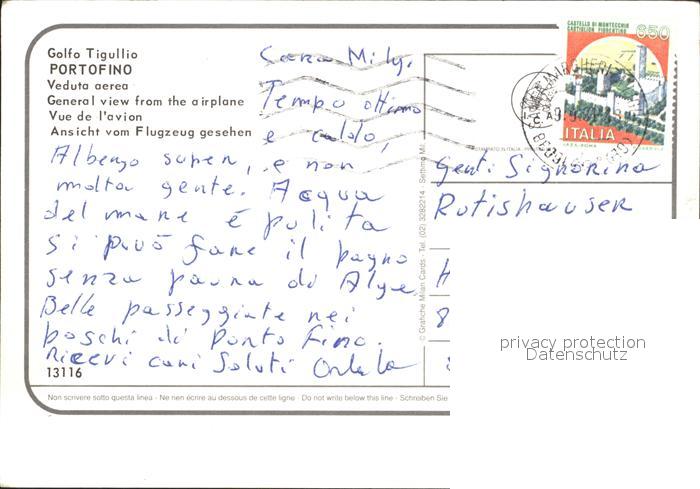 Golfo Tigullio
PORTOFINO
Veduta aerea
General view from the airplane
Vue de l'avion
Ansicht vom Flugzeug gesehen
Cara Mily.
Tempo ottimo
e caldo,
Albergo super, e non
molta gente. Acqua
del mare è pulita
si può fare il bagno
senza paura di Alge
Belle passeggiate nei
boschi di Porto Fino.
Ricevi cari Saluti
13116
Non scrivere sotto questa linea - Ne rien écrire au dessous de cette ligne - Do not write below this line - Schreiben Sie
© Grafiche Milan Cards - Tel. (02) 3282214 - Settimo Mil.
CASTELLO DI MONTECCHIO
CASTIGLION FIORENTINO
650
ITALIA
Gentil Signorina
Rutishauser
H
8
privacy protection
Datenschutz